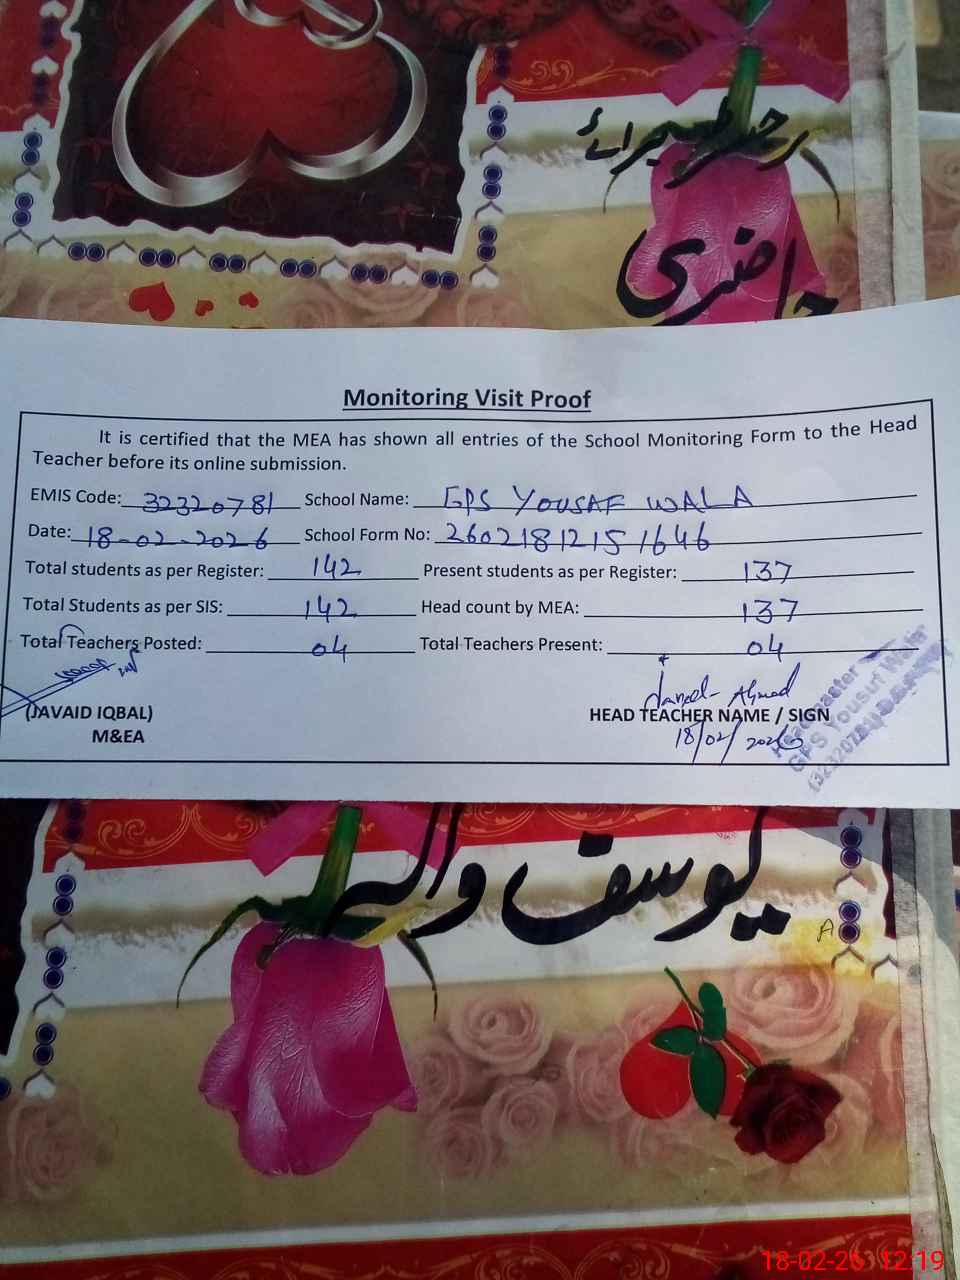 رجسٹر برائے
حاضری
Monitoring Visit Proof
It is certified that the MEA has shown all entries of the School Monitoring Form to the Head
Teacher before its online submission.
EMIS Code: 32320781 School Name: GPS YOUSAF WALA
Date: 18-02-2026 School Form No: 26021812151646
Total students as per Register: 142 Present students as per Register: 137
Total Students as per SIS: 142 Head count by MEA: 137
Total Teachers Posted: 04 Total Teachers Present: 04
(JAVAID IQBAL)
M&EA
Ahmad
HEAD TEACHER NAME / SIGN
18/02/2026
Headmaster
GPS Yousuf Wala
(32320781)
یوسف والہ
A
18-02-26 12:19